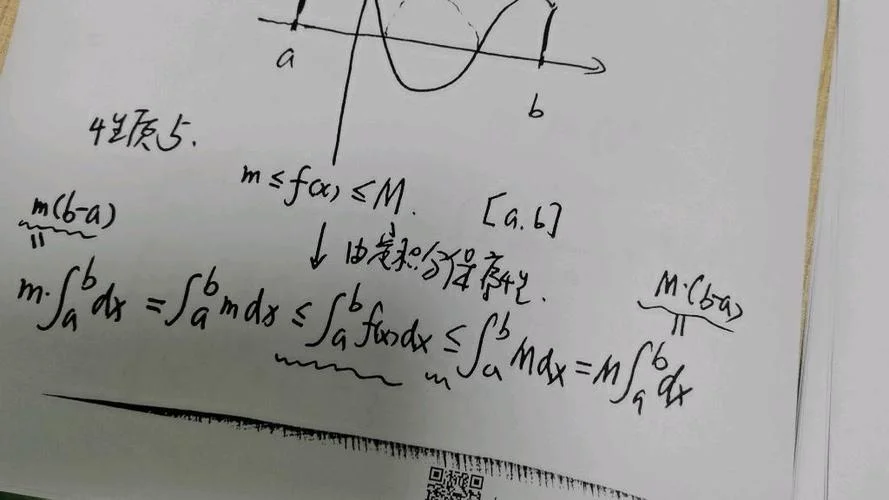 a
b
性质5.
m ≤ f(x) ≤ M. [a.b]
↓ 由定积分保序性.
m(b-a) M·(b-a)
m·∫_a^b dx = ∫_a^b m dx ≤ ∫_a^b f(x) dx ≤ ∫_a^b M dx = M ∫_a^b dx